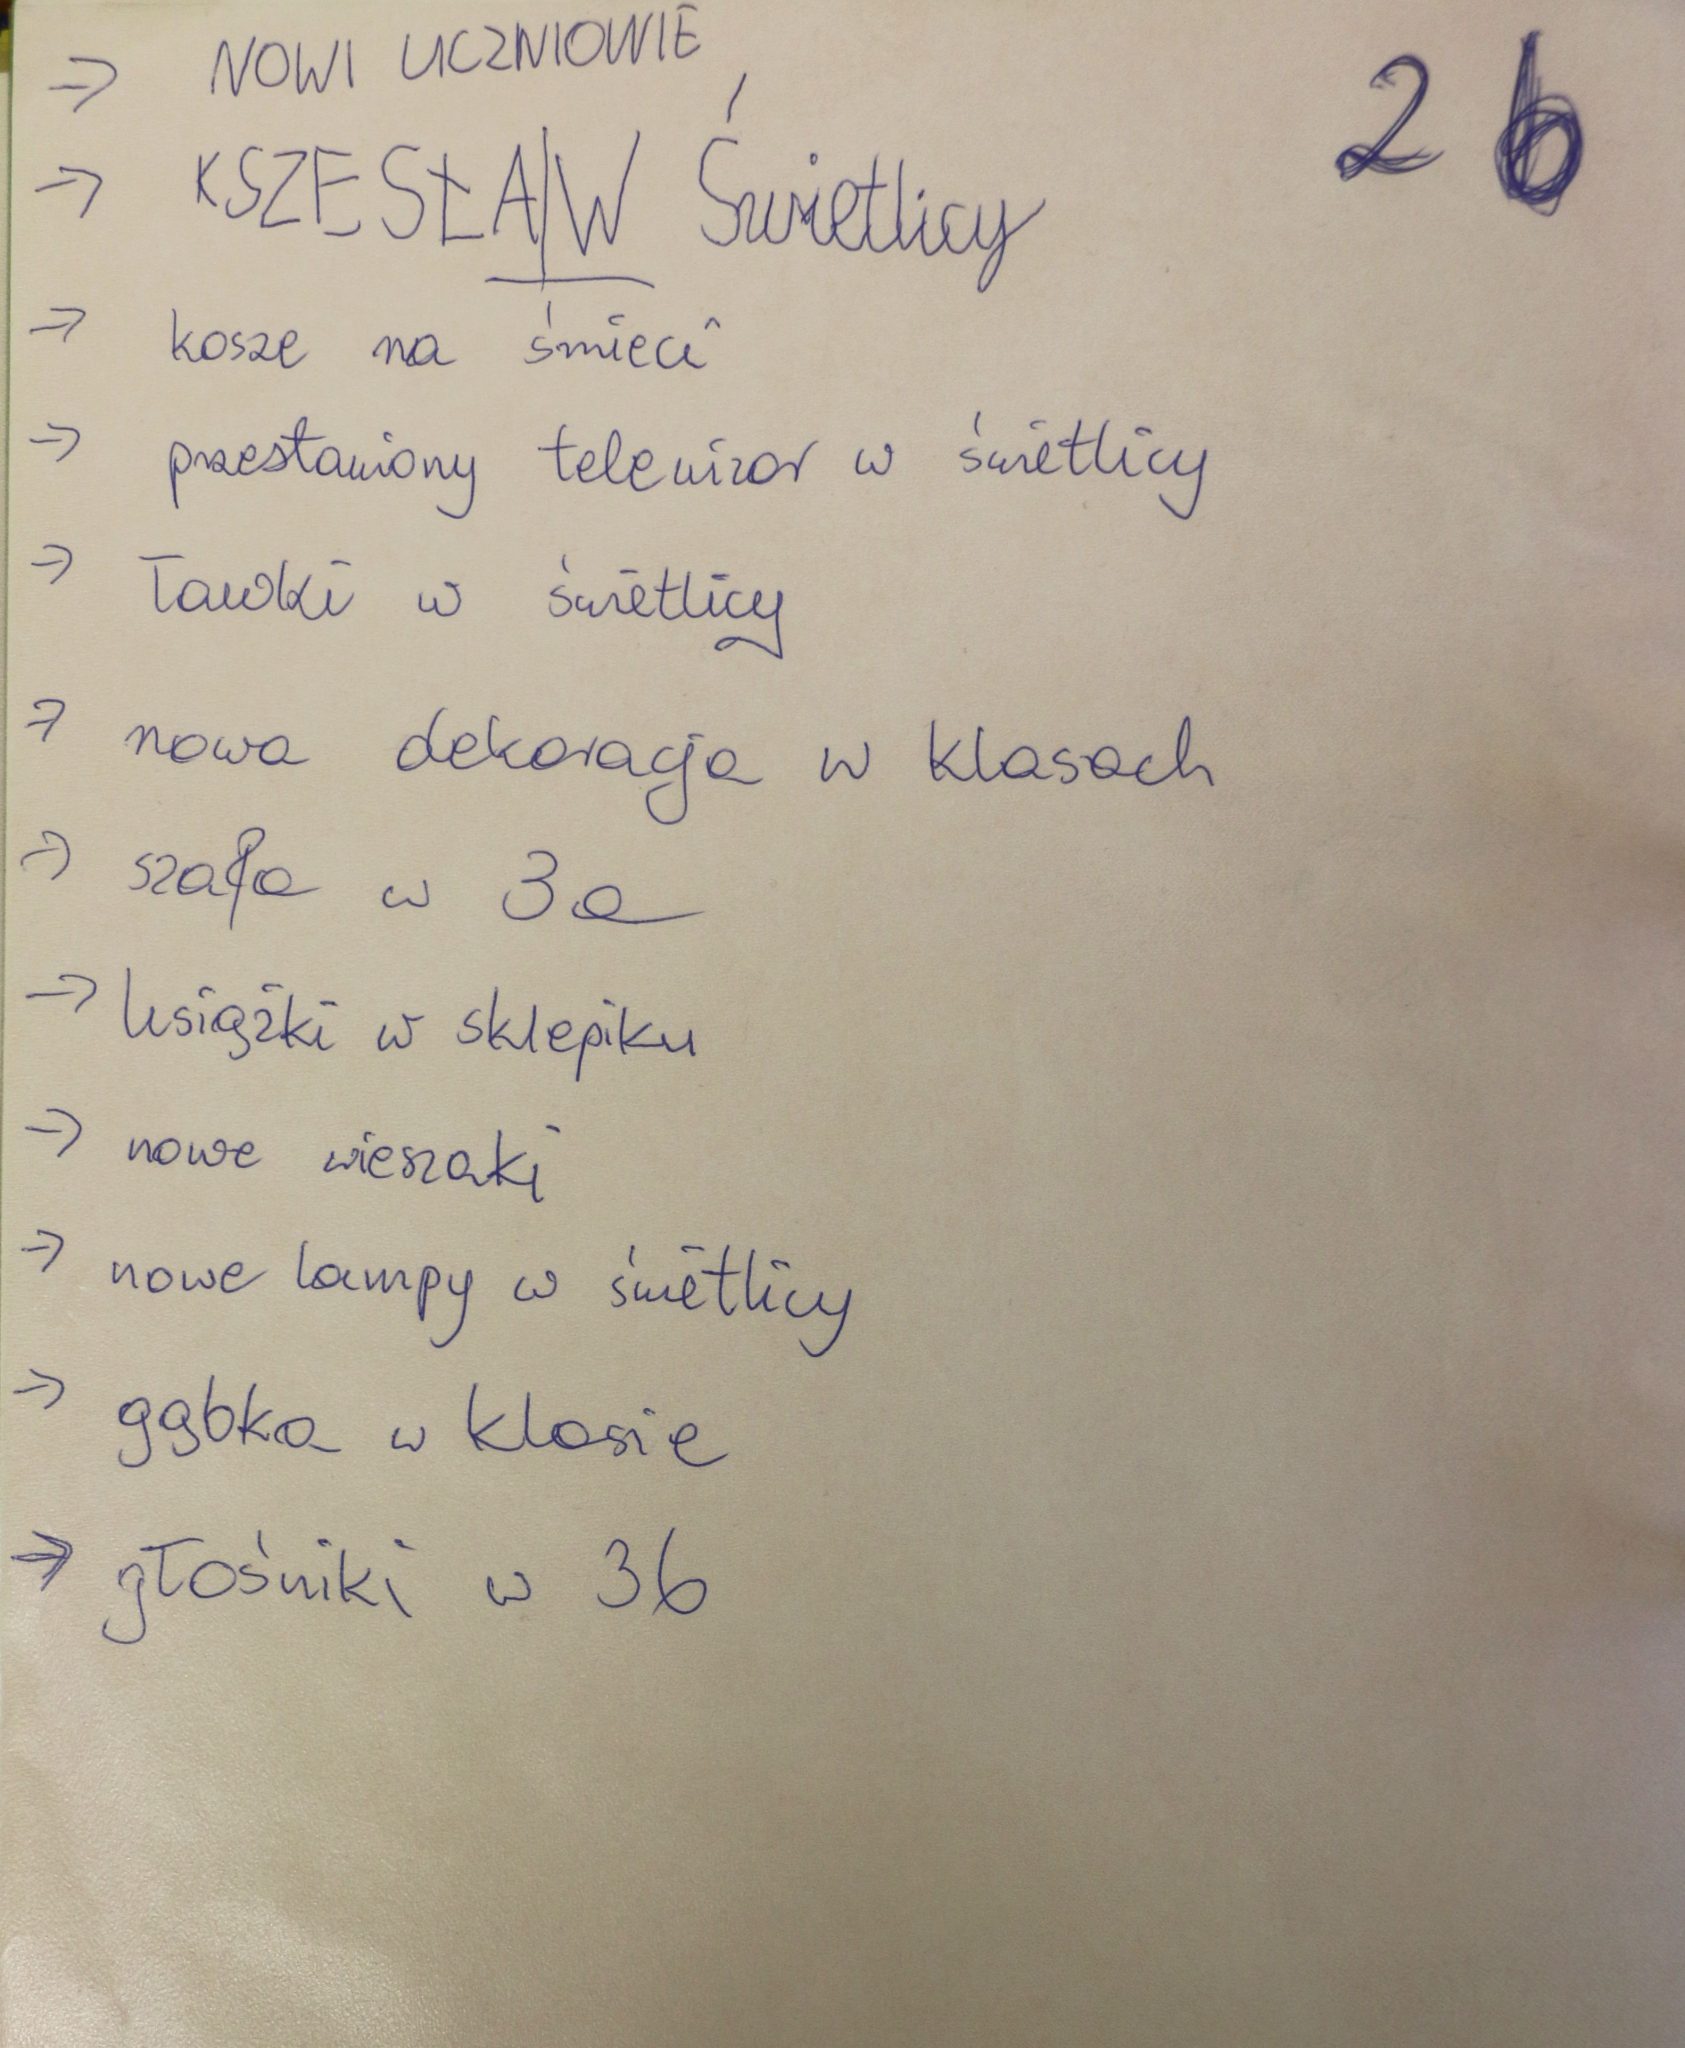 → NOWI UCZNIOWIE
2b
→ KSZESŁA|W Świetlicy
→ kosze na śmieci
→ przestawiony telewizor w świetlicy
→ ławki w świetlicy
→ nowa dekoracja w klasach
→ szafa w 3a
→ książki w sklepiku
→ nowe wieszaki
→ nowe lampy w świetlicy
→ gąbka w klasie
→ głośniki w 3b